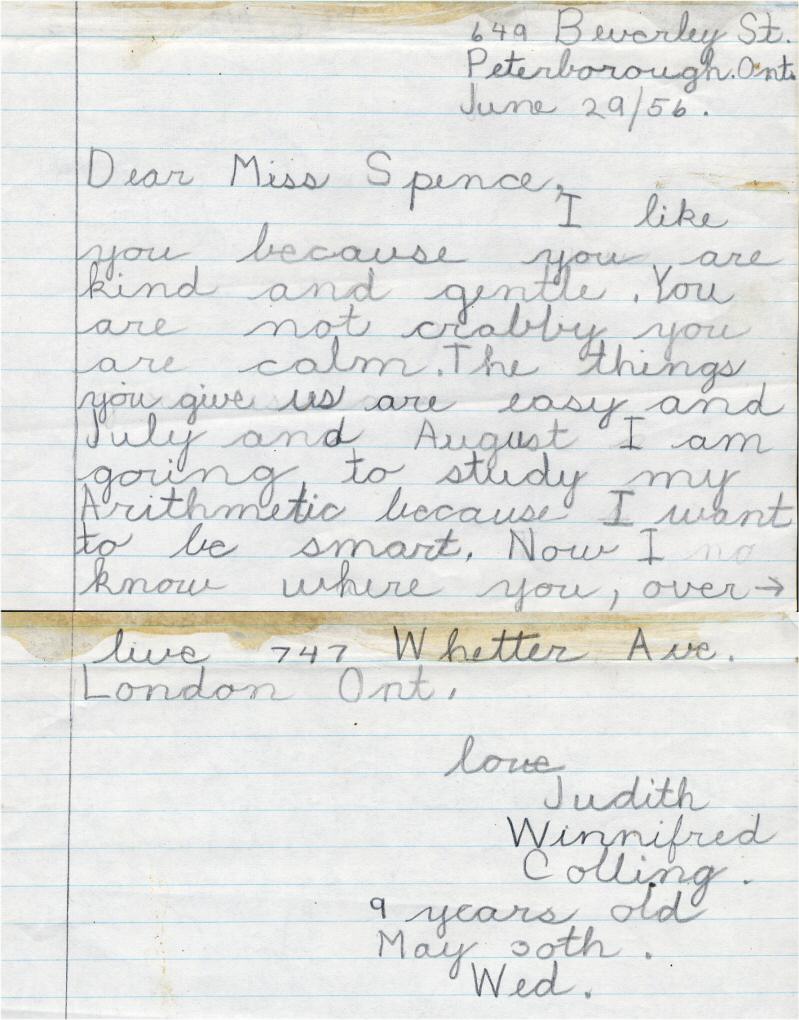 649 Beverley St.
Peterborough.Ont.
June 29/56.
Dear Miss Spence,
I like
you because you are
kind and gentle. You
are not crabby you
are calm. The things
you give us are easy and
July and August I am
going to study my
Arithmetic because I want
to be smart. Now I no
know where you, over→
live 747 Whetter Ave.
London Ont.
love
Judith
Winnifred
Colling.
9 years old
May 30th.
Wed.